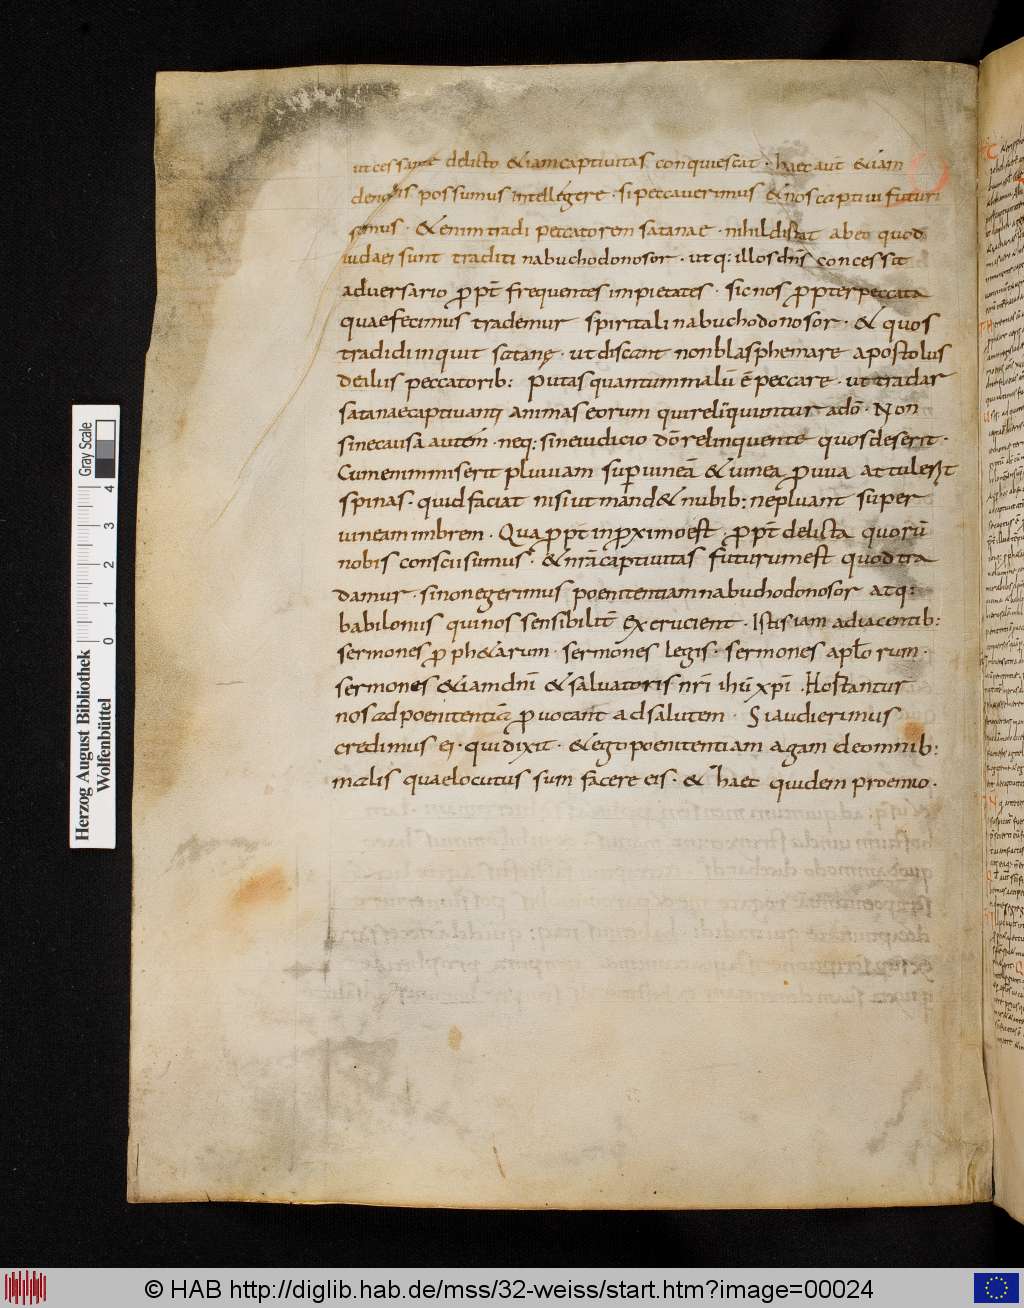 ut cessante delicto &iam captivitas conquiescat · haec aut̄ &iam
denobis possumus intellegere · si peccaverimus &nos captivi futuri
sumus · &enim tradi peccatorem satanae · nihil distat abeo quod
iudaei sunt traditi nabuchodonosor · utq: illos dn̄s concessit
adversario ꝓpt̄ frequentes impietates · sic nos ꝓpter peccata
quae fecimus trademur spiritali nabuchodonosor · & quos
tradidi inquit satanę · ut discant non blasphemare apostolus
de illis peccatorib: Putas quantum malū ē peccare · ut tradar
satanae captivant animas eorum qui relinquuntur adō · Non
sine causā autem · neq: sine iudicio dō relinquente quos deserit ·
Cum enim miserit pluviam super vineā &vinea ꝓ uva attulerit
spinas · quid faciat nisi ut mand& nubib: ne pluant super
vineam imbrem · Qua ꝓpt̄ in ꝓximo est · ꝓpt̄ delicta quorū
nobis conscii sumus · &nrā captivitas futurum est quod tra
damur · si non egerimus poenitentiam nabuchodonosor atq:
babiloniis qui nos sensibilit̄ excrucient · Istis iam adiacentib:
sermones ꝓph&arum · sermones legis · sermones aplorum ·
sermones &iam dn̄i &salvatoris nr̄i ihū xp̄i · Hortantur
nos ad poenitentiā ꝓvocant ad salutem · Si audierimus
credimus ei · qui dixit · &ego poenitentiam agam de omnib:
malis quae locutus sum facere eis · & haec quidem proemio ·
Herzog August Bibliothek
Wolfenbüttel
0 1 2 3 4
Gray Scale
© HAB http://diglib.hab.de/mss/32-weiss/start.htm?image=00024